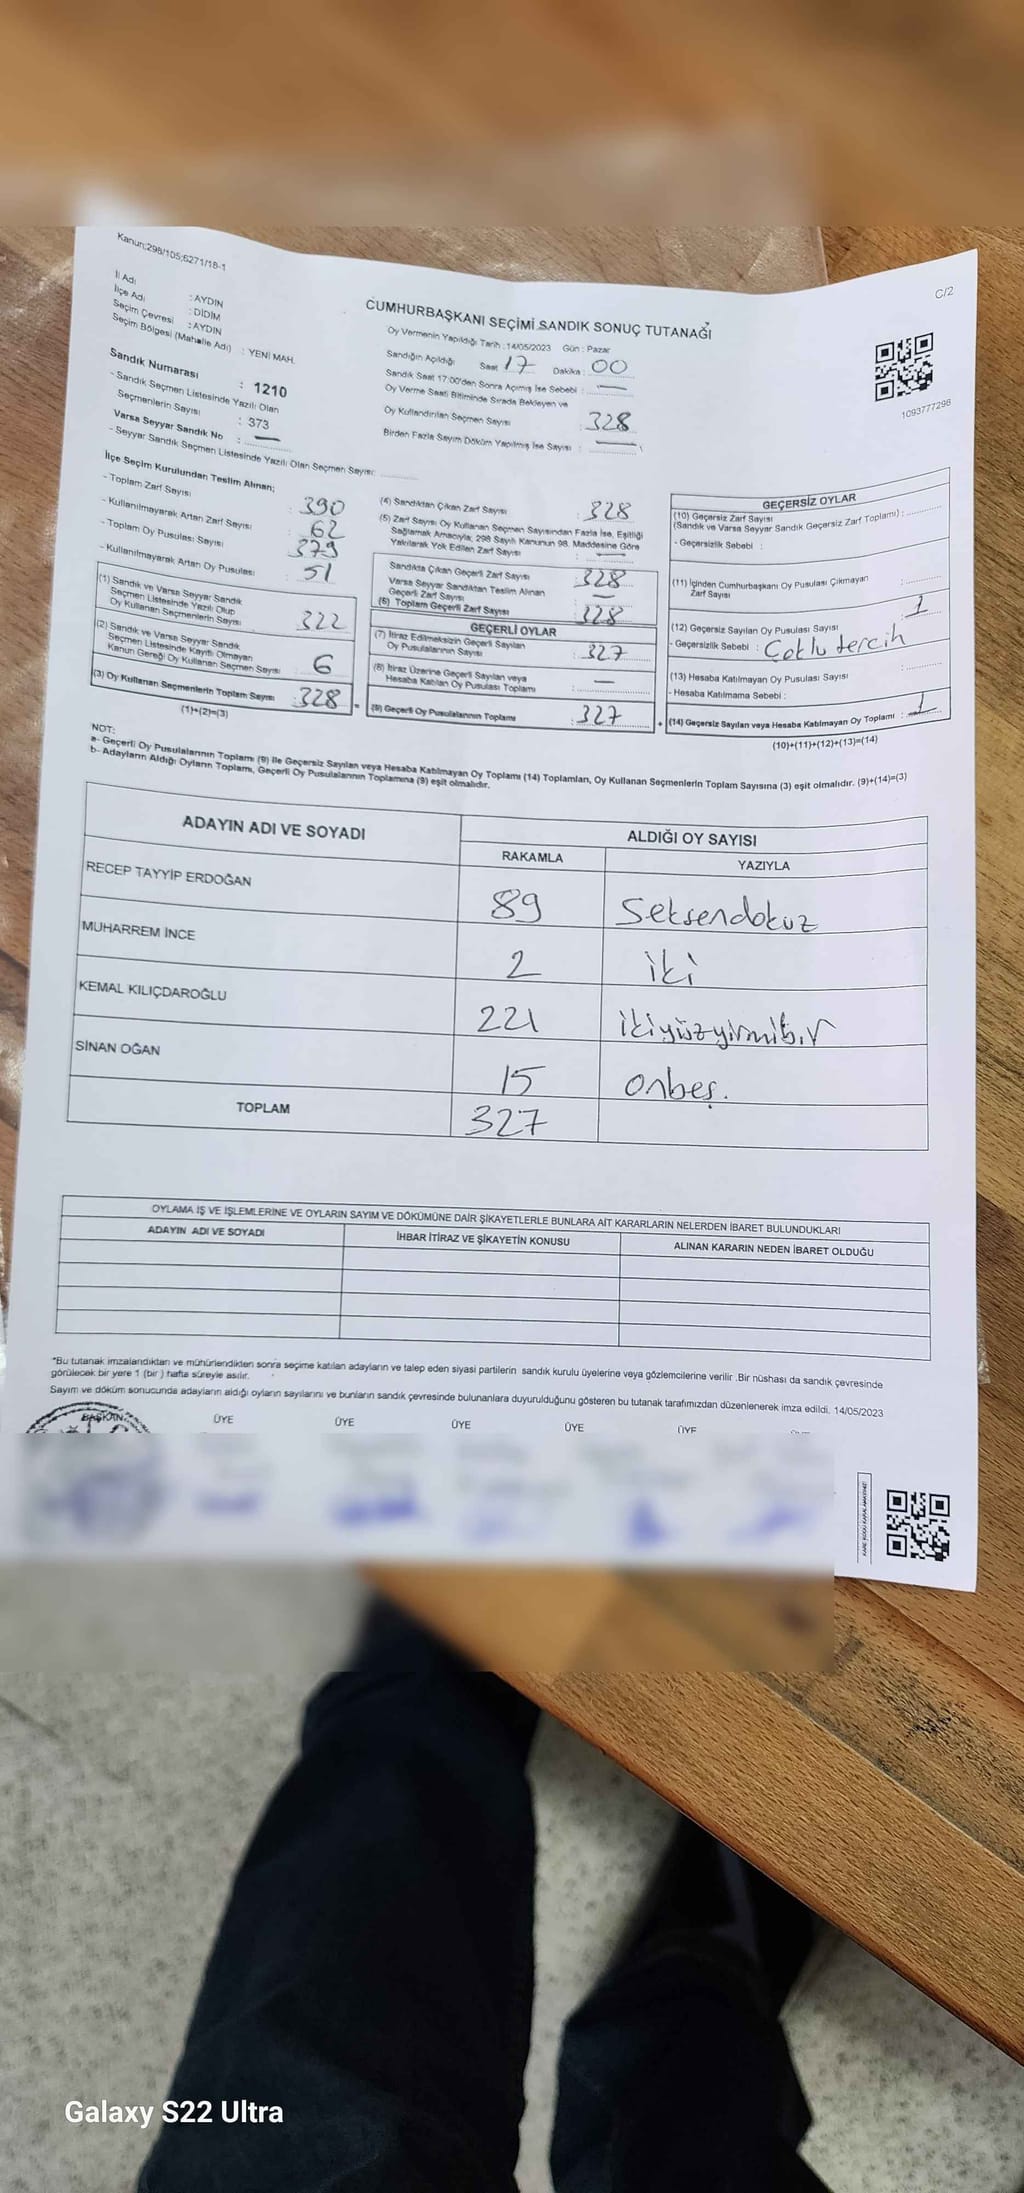 Kanun;298/105;6271/18-1
C/2
İl Adı : AYDIN
İlçe Adı : DİDİM
Seçim Çevresi : AYDIN
Seçim Bölgesi (Mahalle Adı) : YENİ MAH.
Sandık Numarası : 1210
- Sandık Seçmen Listesinde Yazılı Olan
Seçmenlerin Sayısı : 373
Varsa Seyyar Sandık No : —
- Seyyar Sandık Seçmen Listesinde Yazılı Olan Seçmen Sayısı: ............
CUMHURBAŞKANI SEÇİMİ SANDIK SONUÇ TUTANAĞI
Oy Vermenin Yapıldığı Tarih : 14/05/2023 Gün : Pazar
Sandığın Açıldığı Saat 17 Dakika : 00
Sandık Saat 17:00'den Sonra Açılmış İse Sebebi : —
Oy Verme Saati Bitiminde Sırada Bekleyen ve
Oy Kullandırılan Seçmen Sayısı : 328
Birden Fazla Sayım Döküm Yapılmış İse Sayısı : —
1093777298
İlçe Seçim Kurulundan Teslim Alınan;
- Toplam Zarf Sayısı : 390
- Kullanılmayarak Artan Zarf Sayısı : 62
- Toplam Oy Pusulası Sayısı : 379
- Kullanılmayarak Artan Oy Pusulası : 51
(1) Sandık ve Varsa Seyyar Sandık
Seçmen Listesinde Yazılı Olup
Oy Kullanan Seçmenlerin Sayısı : 322
(2) Sandık ve Varsa Seyyar Sandık
Seçmen Listesinde Kayıtlı Olmayan
Kanun Gereği Oy Kullanan Seçmen Sayısı : 6
(3) Oy Kullanan Seçmenlerin Toplam Sayısı : 328
(1)+(2)=(3)
(4) Sandıktan Çıkan Zarf Sayısı : 328
(5) Zarf Sayısı Oy Kullanan Seçmen Sayısından Fazla İse, Eşitliği
Sağlamak Amacıyla; 298 Sayılı Kanunun 98. Maddesine Göre
Yakılarak Yok Edilen Zarf Sayısı : —
Sandıkta Çıkan Geçerli Zarf Sayısı : 328
Varsa Seyyar Sandıktan Teslim Alınan
Geçerli Zarf Sayısı : —
(6) Toplam Geçerli Zarf Sayısı : 328
GEÇERLİ OYLAR
(7) İtiraz Edilmeksizin Geçerli Sayılan
Oy Pusulalarının Sayısı : 327
(8) İtiraz Üzerine Geçerli Sayılan veya
Hesaba Katılan Oy Pusulası Toplamı : —
(9) Geçerli Oy Pusulalarının Toplamı : 327
GEÇERSİZ OYLAR
(10) Geçersiz Zarf Sayısı
(Sandık ve Varsa Seyyar Sandık Geçersiz Zarf Toplamı) : ............
- Geçersizlik Sebebi :
(11) İçinden Cumhurbaşkanı Oy Pusulası Çıkmayan
Zarf Sayısı : ............
(12) Geçersiz Sayılan Oy Pusulası Sayısı : 1
- Geçersizlik Sebebi : Çoklu tercih
(13) Hesaba Katılmayan Oy Pusulası Sayısı : ............
- Hesaba Katılmama Sebebi :
(14) Geçersiz Sayılan veya Hesaba Katılmayan Oy Toplamı : 1
(10)+(11)+(12)+(13)=(14)
NOT:
a- Geçerli Oy Pusulalarının Toplamı (9) ile Geçersiz Sayılan veya Hesaba Katılmayan Oy Toplamı (14) Toplamları, Oy Kullanan Seçmenlerin Toplam Sayısına (3) eşit olmalıdır. (9)+(14)=(3)
b- Adayların Aldığı Oyların Toplamı, Geçerli Oy Pusulalarının Toplamına (9) eşit olmalıdır.
ADAYIN ADI VE SOYADI ALDIĞI OY SAYISI
RAKAMLA YAZIYLA
RECEP TAYYİP ERDOĞAN 89 Seksendokuz
MUHARREM İNCE 2 iki
KEMAL KILIÇDAROĞLU 221 ikiyüzyirmibir
SİNAN OĞAN 15 onbeş.
TOPLAM 327
OYLAMA İŞ VE İŞLEMLERİNE VE OYLARIN SAYIM VE DÖKÜMÜNE DAİR ŞİKAYETLERLE BUNLARA AİT KARARLARIN NELERDEN İBARET BULUNDUKLARI
ADAYIN ADI VE SOYADI İHBAR İTİRAZ VE ŞİKAYETİN KONUSU ALINAN KARARIN NEDEN İBARET OLDUĞU
*Bu tutanak imzalandıktan ve mühürlendikten sonra seçime katılan adayların ve talep eden siyasi partilerin sandık kurulu üyelerine veya gözlemcilerine verilir .Bir nüshası da sandık çevresinde
görülecek bir yere 1 (bir ) hafta süreyle asılır.
Sayım ve döküm sonucunda adayların aldığı oyların sayılarını ve bunların sandık çevresinde bulunanlara duyurulduğunu gösteren bu tutanak tarafımızdan düzenlenerek imza edildi. 14/05/2023
BAŞKAN ÜYE ÜYE ÜYE ÜYE ÜYE
Galaxy S22 Ultra